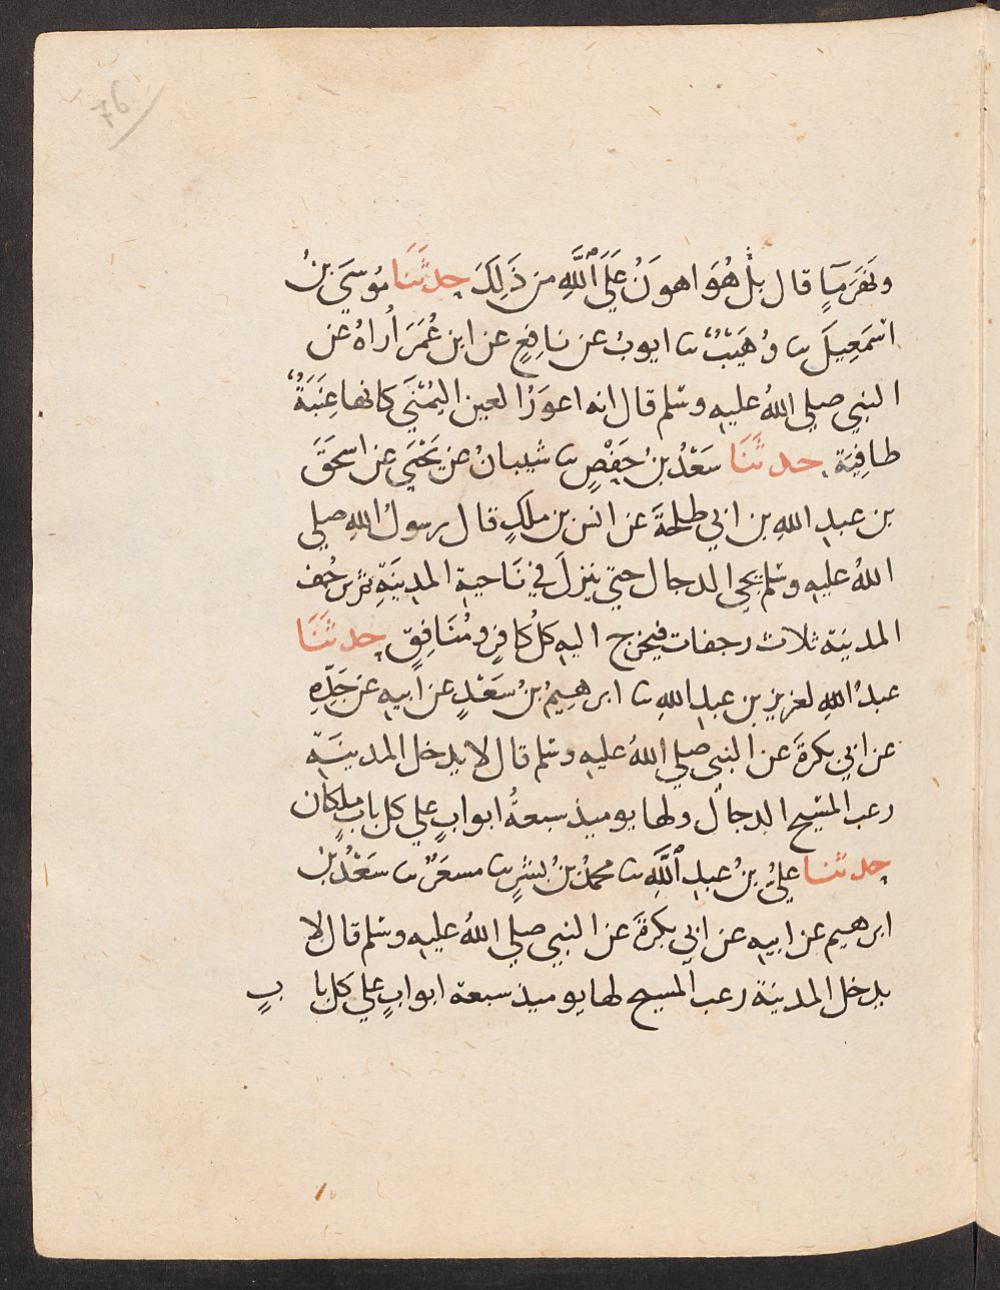 76
ونَهَرَ مَآءٍ قال بلْ هُوَ اهونُ عَلَى ٱللَّهِ من ذَلِكَ حدثَنَا مُوسَى بنُ
اسْمَعِيلَ نا وُهَيْبٌ نا ايوبُ عن نافِعٍ عن ابن عُمَرَ اُراهُ عن
النبي صلي اللهُ عليه وسَلم قال انه اعوَرُ العين اليُمْنَي كانها عِنَبَةٌ
طافِيَة حدثَنَا سَعْدُ بنُ حَفْصٍ نا شيبانُ عن يَحْيَي عن اسحَقَ
بن عبدِ اللهِ بن ابي طلحةَ عن انس بن ملكٍ قال رسولُ اللهِ صلي
اللهُ عليه وسَلم يجي الدجال حتي ينزلَ في نَاحية المدينَةِ ترسجُف
المدينة ثلاث رجفات فيخرج اليه كلُ كافرٍ ومُنَافِقٍ حدثَنَا
عبدُ اللهِ لعزيز بن عبدِ اللهِ نا ابرهيمُ بنُ سَعْدٍ عن ابيه عن جَدِّهِ
عن ابي بكرةَ عن النبي صلي اللهُ عليه وسَلم قال لا يدخل المدينَة
رعب المَسيح الدجال ولها يوميذ سبعةُ ابوابٍ علي كل بابٍ ملكان
حدثنا عليُ بنُ عبدِ ٱللَّهِ نا محمدُ بنُ بشرٍ نا مسعَرٌ نا سَعْدُ بنُ
ابرهيم عن ابيه عن ابي بكرةَ عن النبي صلي اللهُ عليه وسَلم قال لا
يدخل المدينَة رعب المسيح لها يوميذ سبعة ابوابٍ علي كل با بٍ